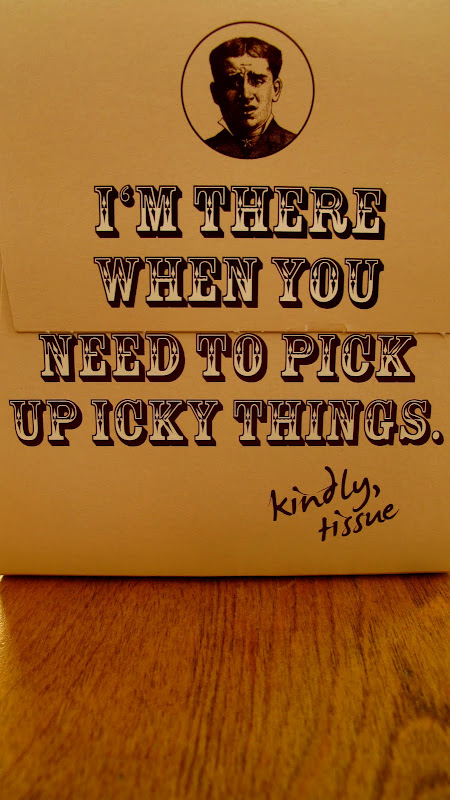 I‘M THERE
WHEN YOU
NEED TO PICK
UP ICKY THINGS.
kindly,
tissue